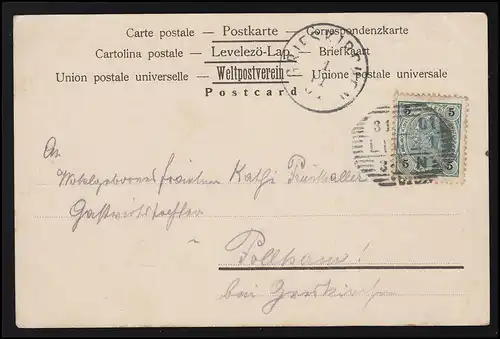 Carte postale — Postkarte — Correspondenzkarte
Cartolina postale — Levelezö-Lap — Briefkaart
Union postale universelle — Weltpostverein — Unione postale universale
Postcard
GRIESKIRCHEN
5 5
5 5
31 01
LINZ 1
An
Wohlgeborenes Fräulein Kathi
Gastwirtstochter
Pollham!
bei Grieskirchen